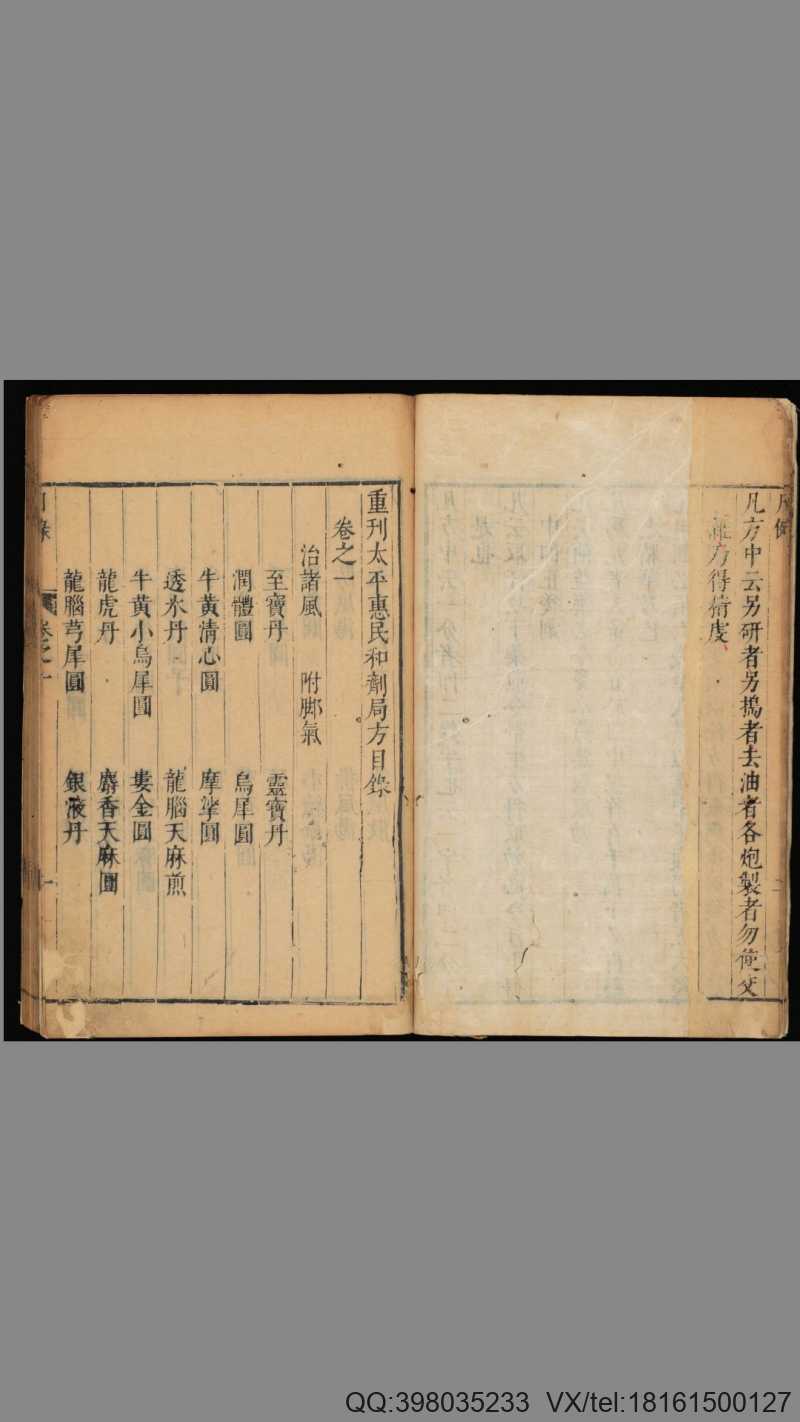 凡例
凡方中云另研者另搗者去油者各炮製者勿
方得
重刊太平惠民和劑局方目錄
卷之一
治諸風 附脚氣
至寶丹 靈寶丹
潤體圓 烏犀圓
牛黃清心圓 摩挲圓
透氷丹 龍腦天麻煎
牛黃小烏犀圓 婁金圓
龍虎丹 麝香天麻圓
龍腦芎犀圓 銀液丹
目錄 卷之一 一
QQ:398035233 VX/tel:18161500127